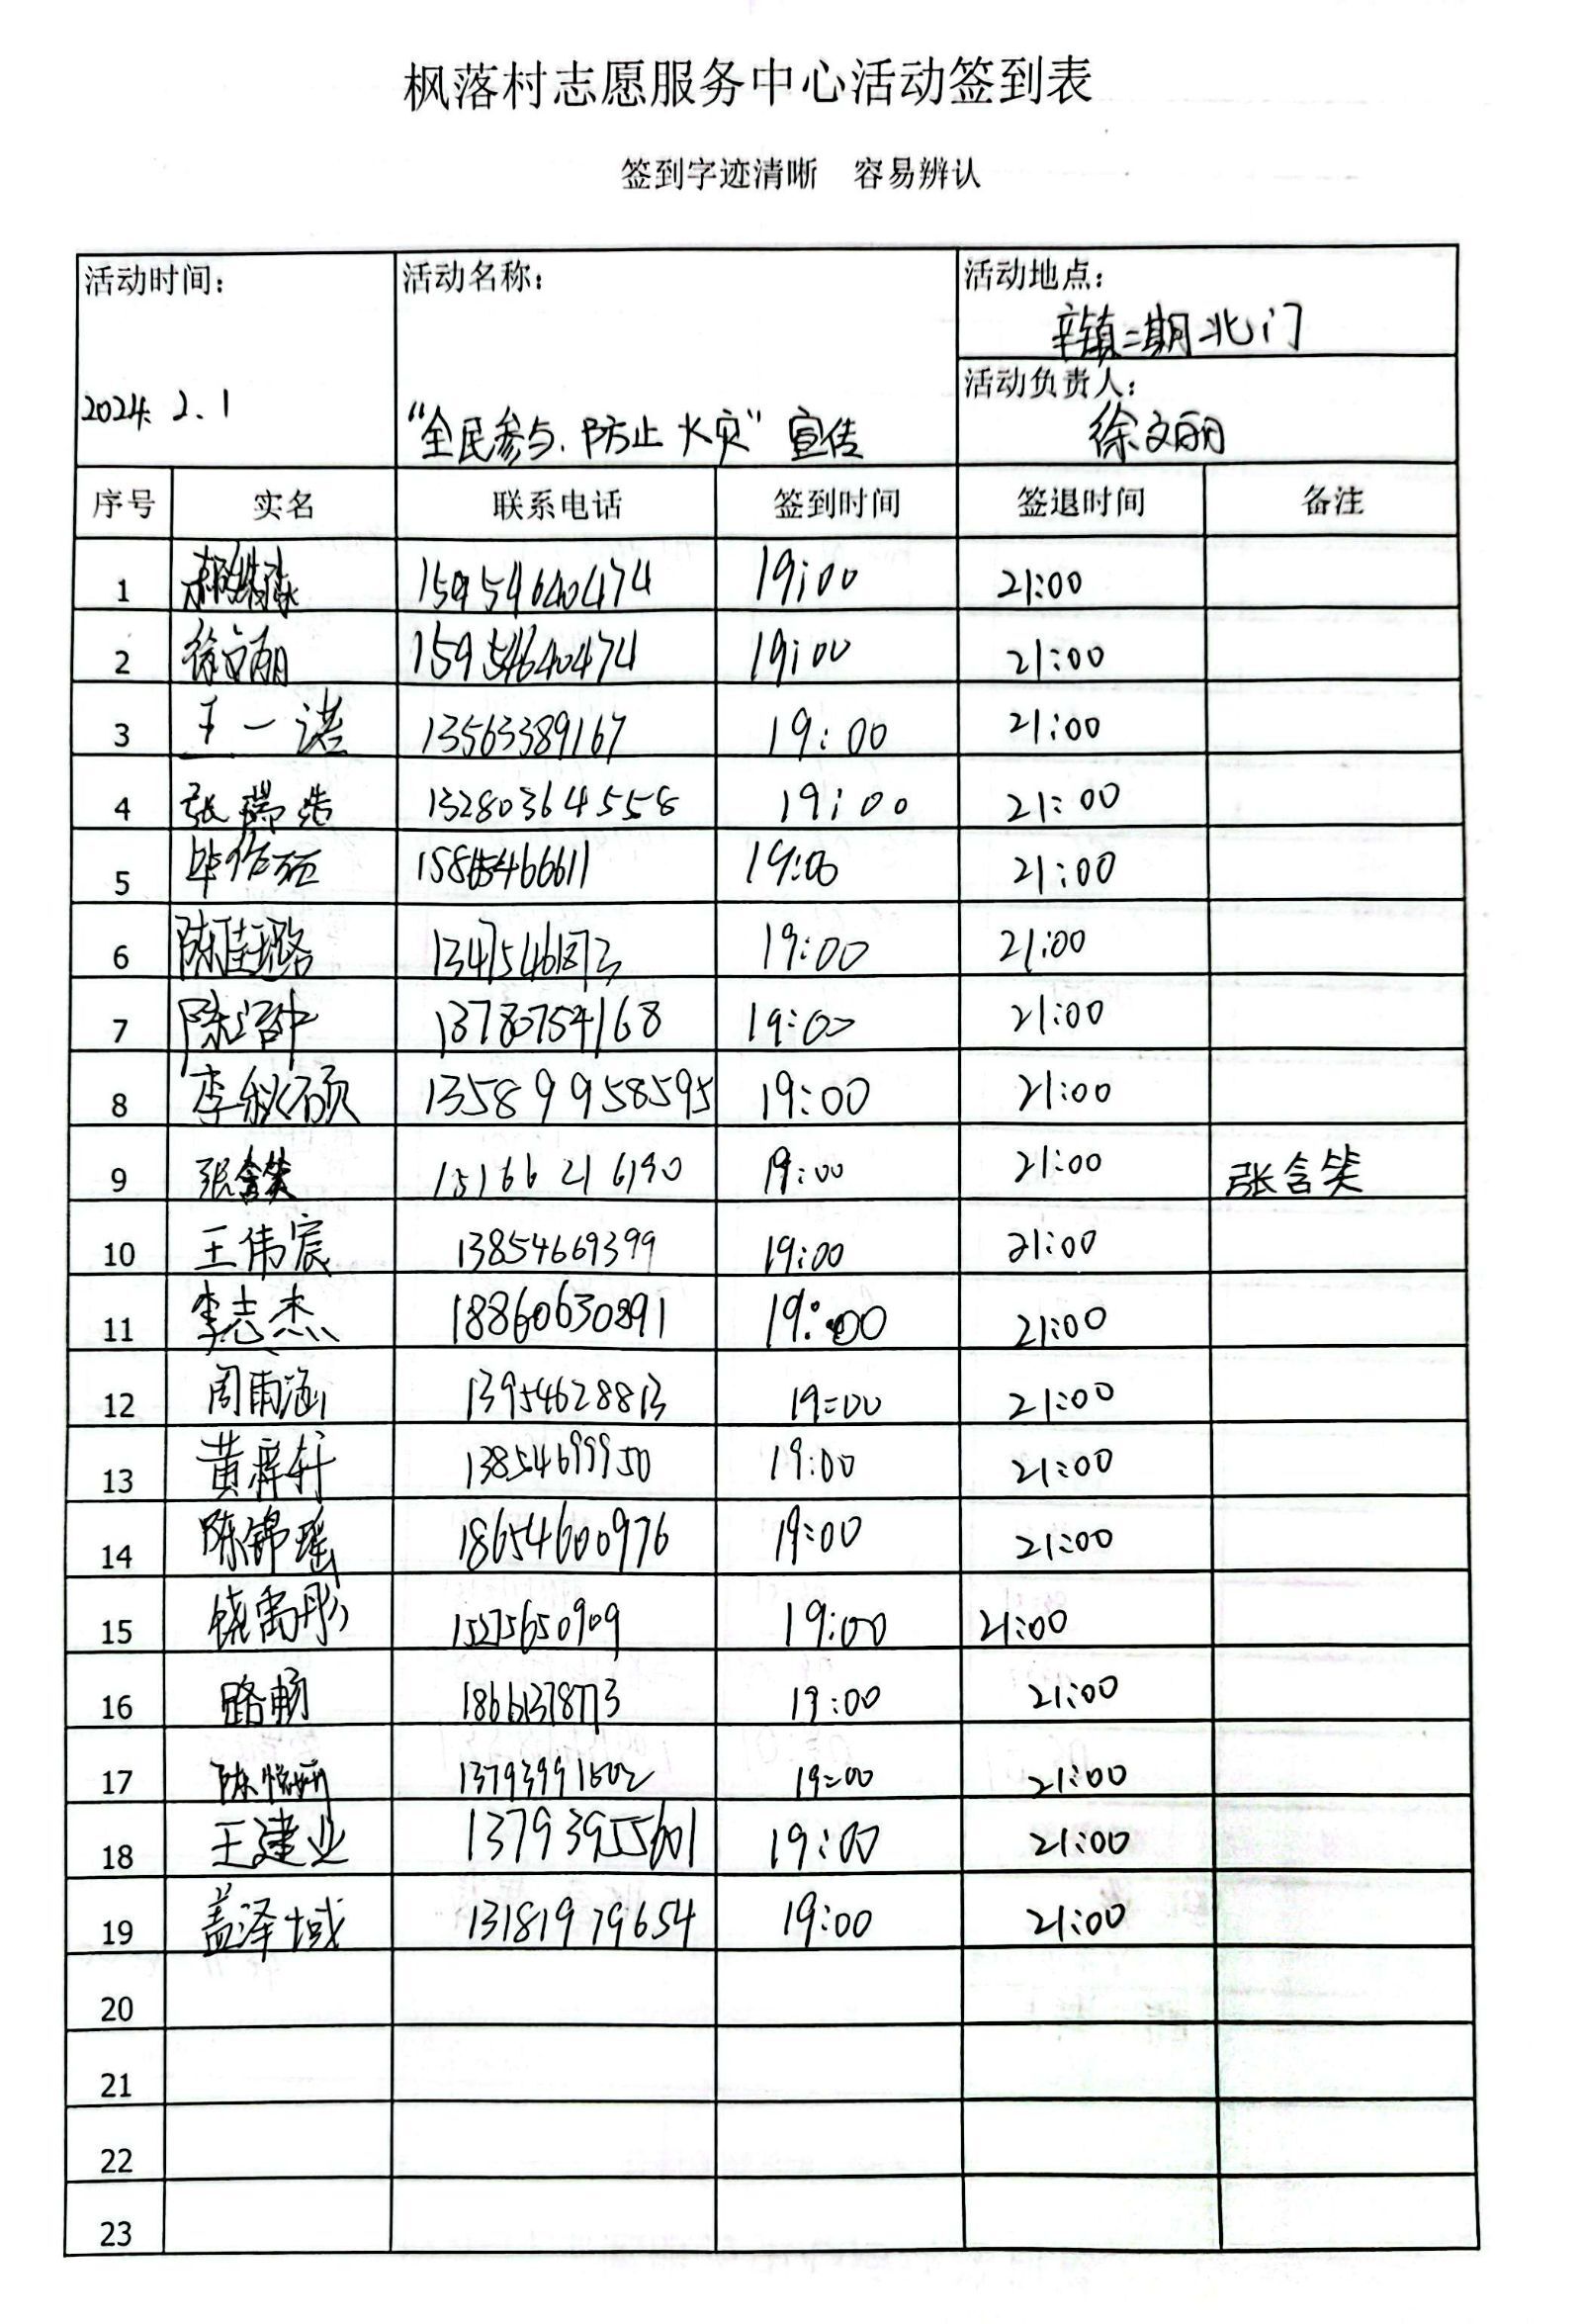 枫落村志愿服务中心活动签到表
签到字迹清晰 容易辨认
活动时间: 活动名称: 活动地点:
辛镇二期北门
活动负责人:
2024. 2. 1 "全民参与、防止火灾" 宣传 徐文丽
序号 实名 联系电话 签到时间 签退时间 备注
1 15954640474 19:00 21:00
2 徐文丽 15954640474 19:00 21:00
3 王一诺 13563389167 19:00 21:00
4 张瑞浩 13280364558 19:00 21:00
5 毕作硕 19:00 21:00
6 陈佳璐 19:00 21:00
7 13780754168 19:00 21:00
8 李秋硕 13589958595 19:00 21:00
9 张含笑 15166216190 19:00 21:00 张含笑
10 王伟宸 13854669399 19:00 21:00
11 李志杰 18860630891 19:00 21:00
12 周雨涵 13954628813 19:00 21:00
13 13854699950 19:00 21:00
14 陈锦瑶 18654600976 19:00 21:00
15 饶禹彤 15275650909 19:00 21:00
16 路畅 19:00 21:00
17 13793991602 19:00 21:00
18 王建业 13793955601 19:00 21:00
19 盖泽域 13181979654 19:00 21:00
20
21
22
23